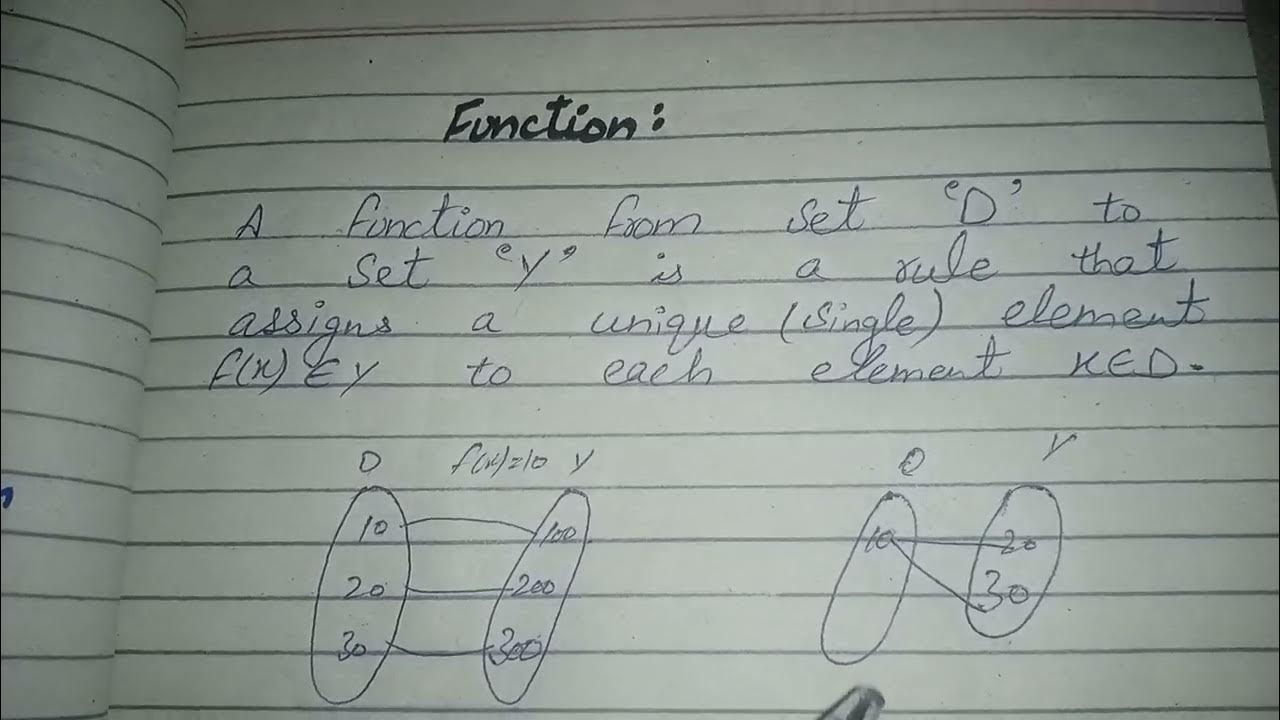 Function:
A function from set 'D' to
a set 'Y' is a rule that
assigns a unique (single) element
f(x) ∈ Y to each element x ∈ D.
D f(x)=10 Y
10 100
20 200
30 300
D Y
10 20
30